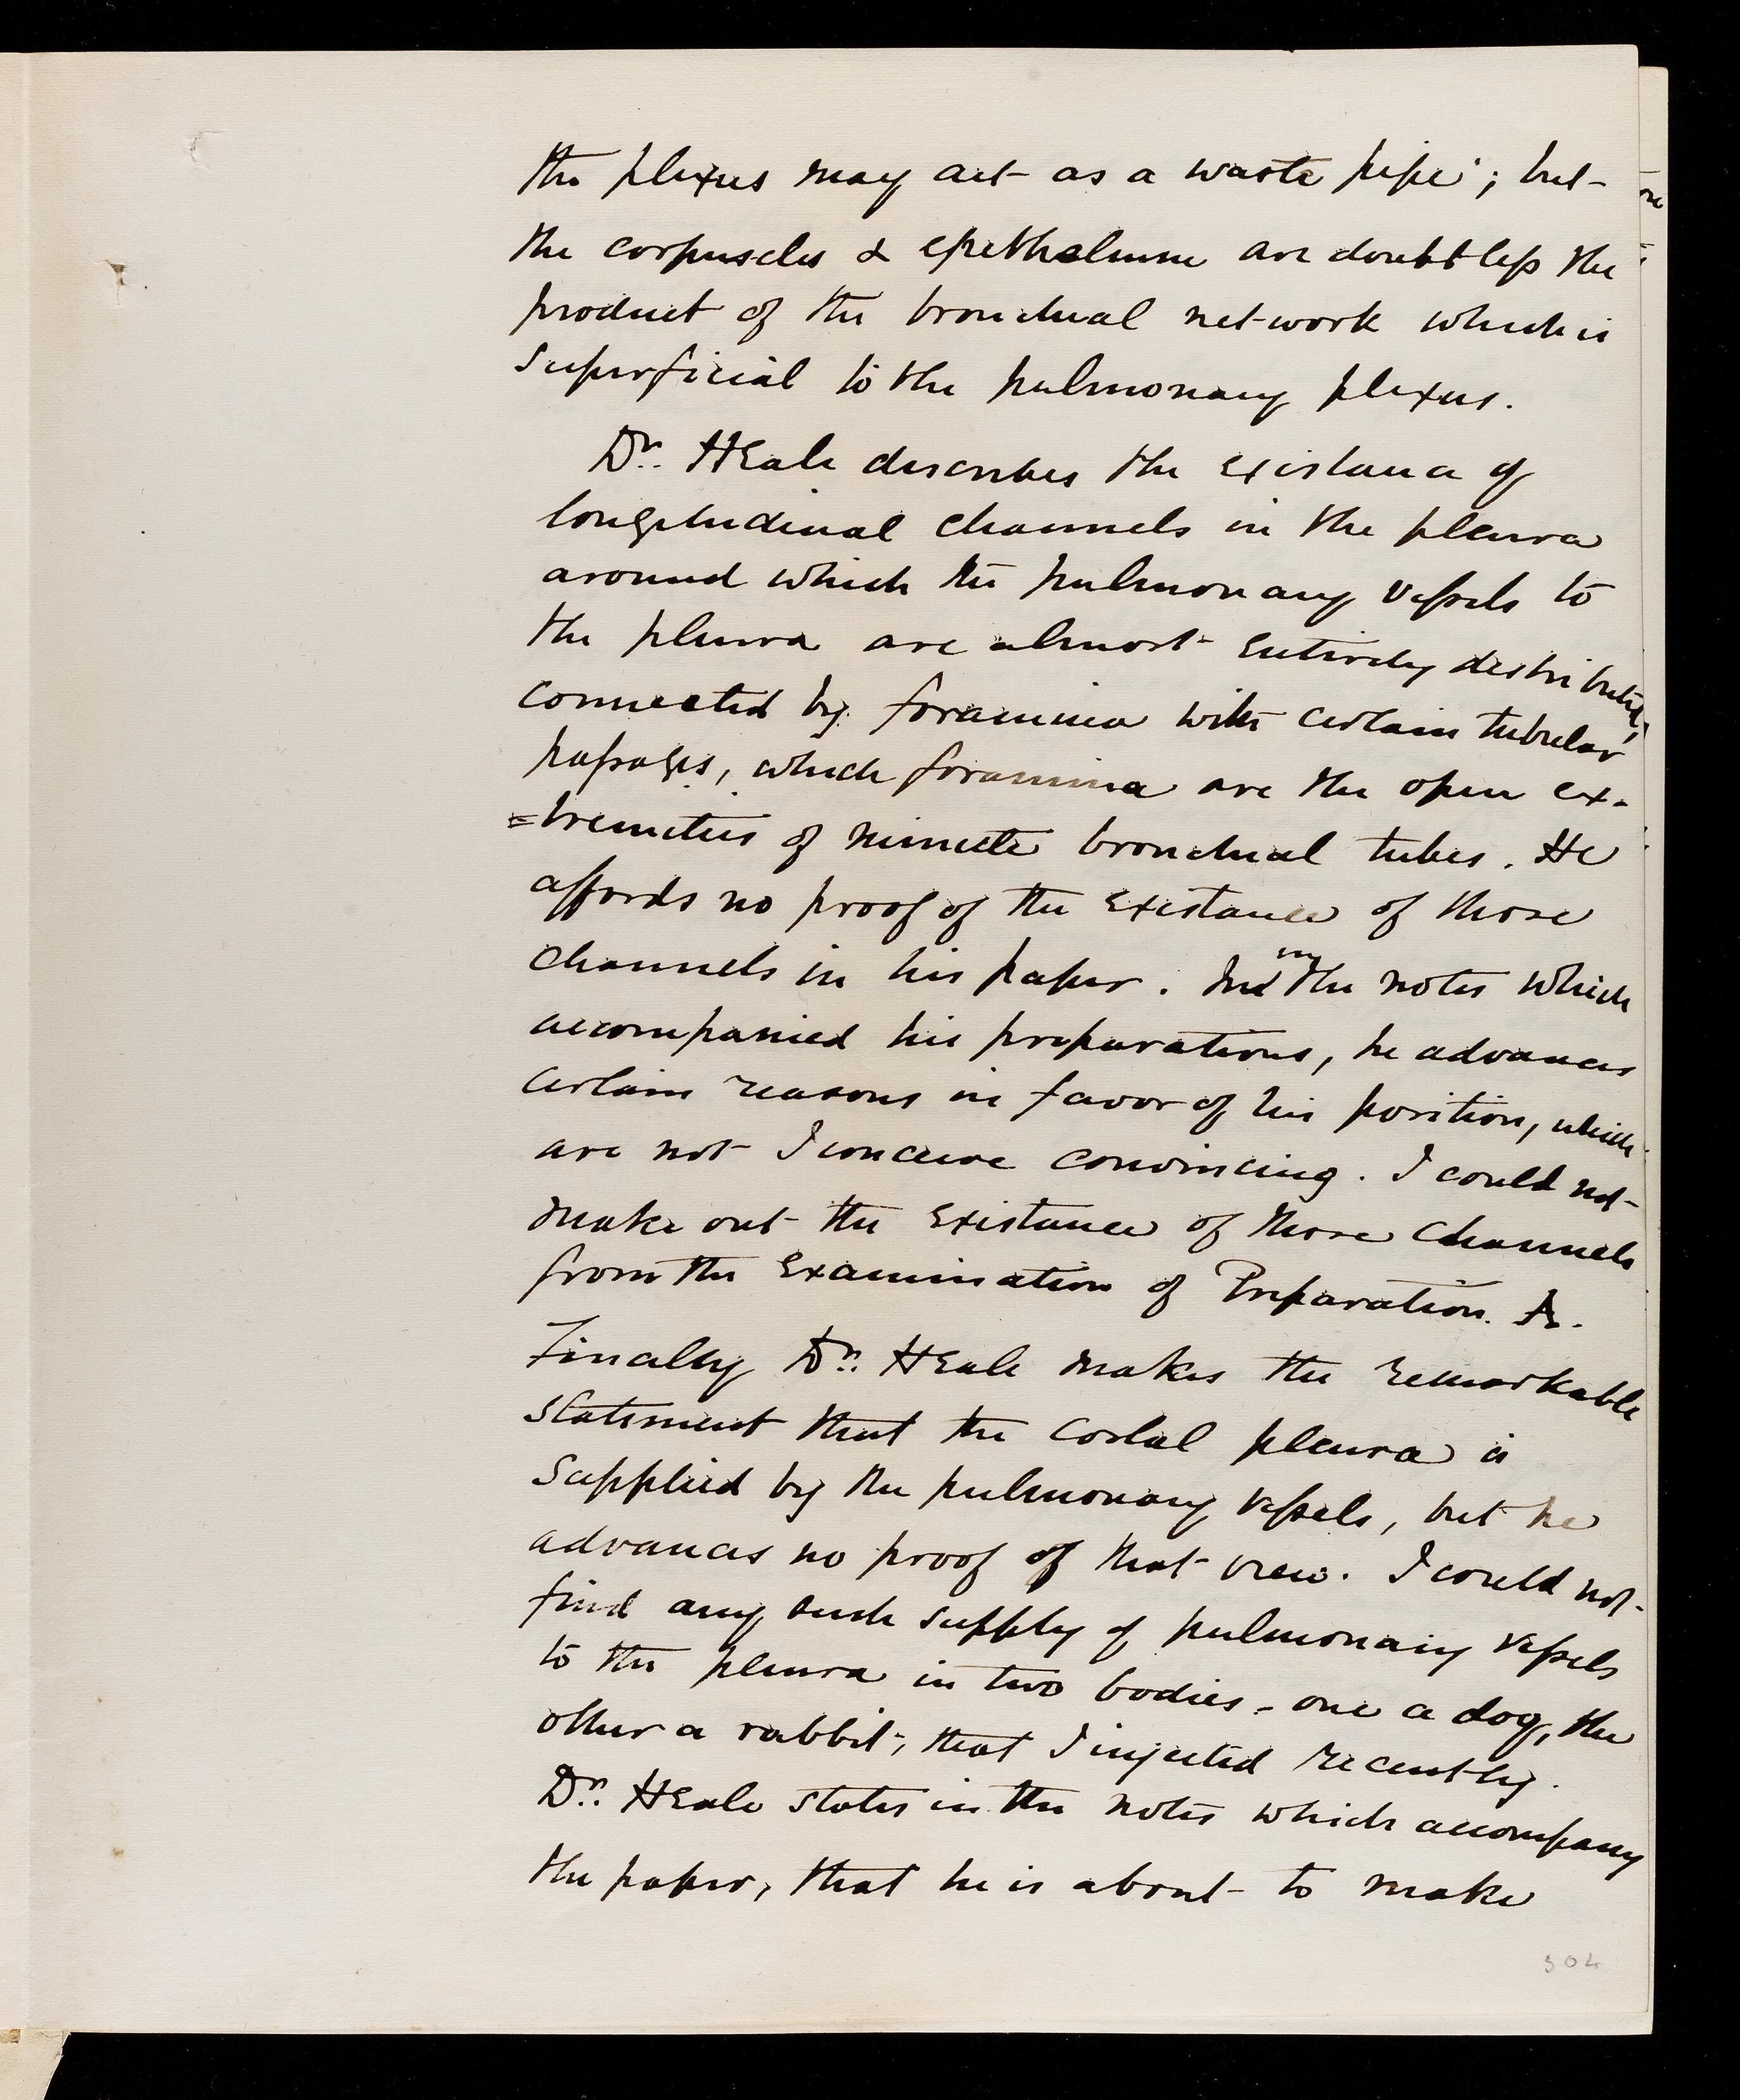 the plexus may act as a waste pipe'; but
the corpuscles & epithelium are doubtless the
product of the bronchial net-work which is
superficial to the pulmonary plexus.
Dr. Heale describes the existance of
longitudinal channels in the pleura
around which the pulmonary vessels to
the pleura are almost entirely distributed,
connected by foramina with certain tubular
passages, which foramina are the open ex-
=tremities of minute bronchial tubes. He
affords no proof of the existance of those
channels in his paper. In the notes which
accompanied his preparations, he advances
certain reasons in favor of his position, which
are not I conceive convincing. I could not
make out the existance of those channels
from the examination of Preparation. A.
Finally Dr. Heale makes the remarkable
statement that the costal pleura is
supplied by the pulmonary vessels, but he
advances no proof of that view. I could not
find any such supply of pulmonary vessels
to the pleura in two bodies - one a dog, the
other a rabbit, that I injected recently.
Dr. Heale states in the notes which accompany
the paper, that he is about to make
304